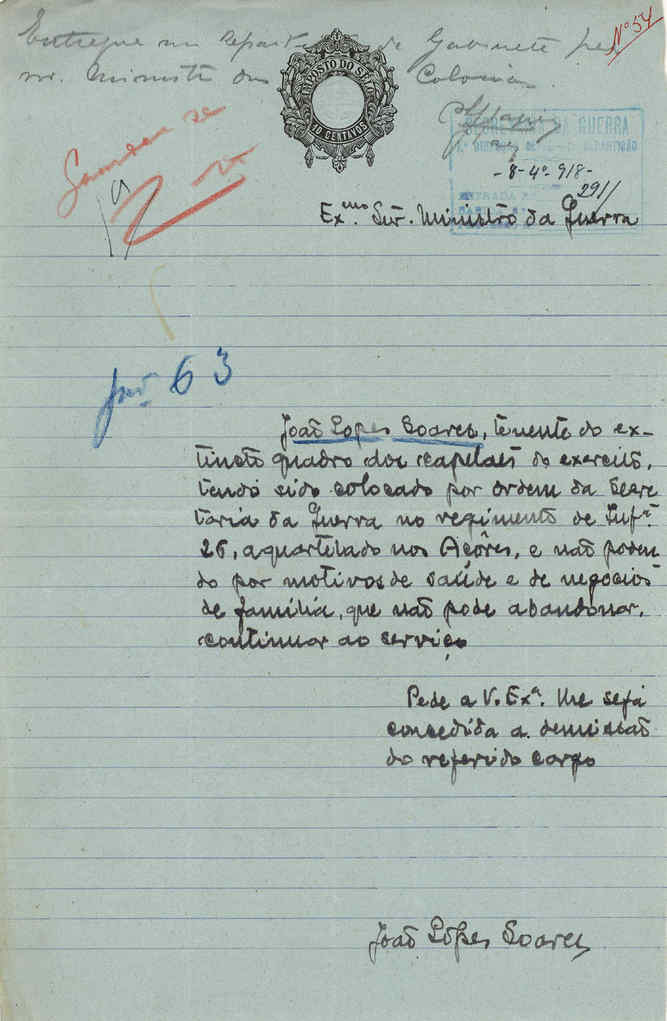 Nº 54
Entregue na Repartição do Gabinete pelo
Sr. Ministro das Colonias
IMPOSTO DO SELO
10 CENTAVOS
SECRETARIA DA GUERRA
REPARTIÇÃO
-8-4º-918-
291
ENTRADA
Ex.mo Snr. Ministro da Guerra
63
João Lopes Soares, tenente do ex-
tincto quadro dos capelães do exercito,
tendo sido colocado por ordem da Secre
taria da Guerra no regimento de Infª.
26, aquartelado nos Açôres, e não poden
do por motivos de saúde e de negocios
de familia, que não pode abandonar,
continuar ao serviço
Pede a V. Exª. lhe seja
concedida a demissão
do referido corpo
João Lopes Soares